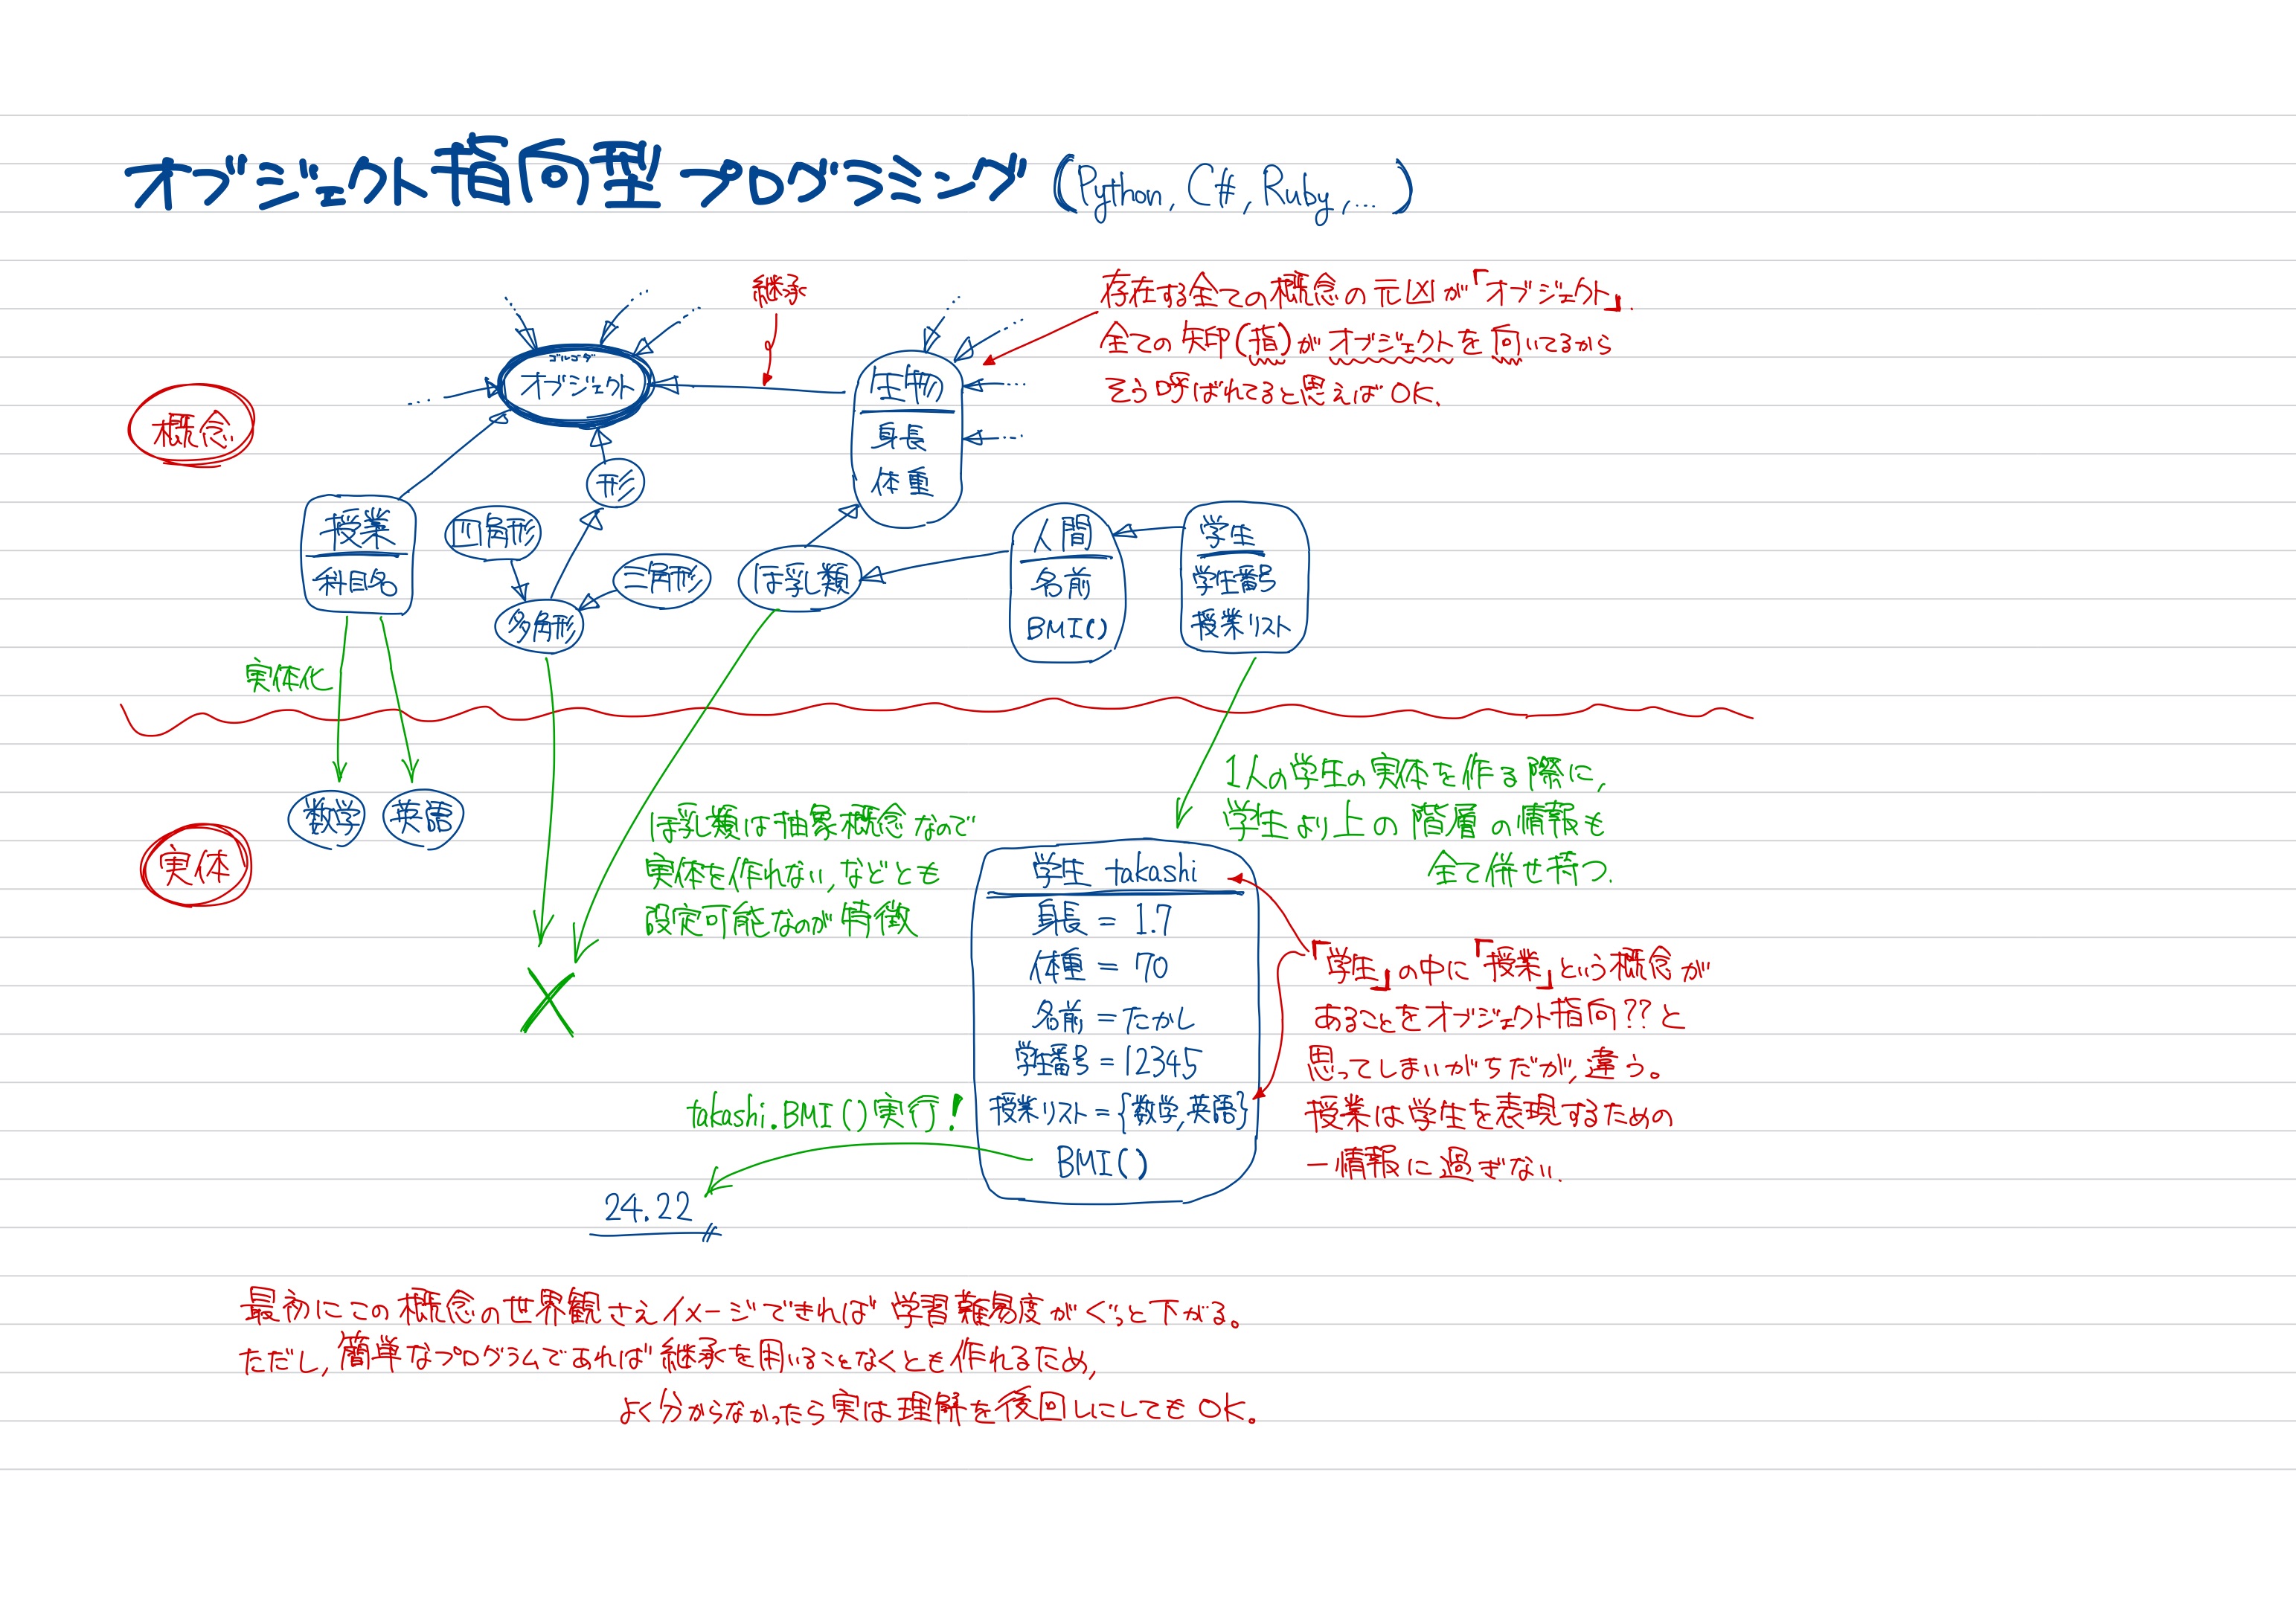 オブジェクト指向型プログラミング (Python, C#, Ruby, ...)
継承
存在する全ての概念の元凶が「オブジェクト」.
全ての矢印(指)がオブジェクトを向いてるから
そう呼ばれてると思えばOK.
概念
ゴルゴダ
オブジェクト
生物
身長
体重
形
授業
科目名
四角形
三角形
多角形
ほ乳類
人間
名前
BMI()
学生
学生番号
授業リスト
実体化
数学
英語
実体
ほ乳類は抽象概念なので
実体を作れない,などとも
設定可能なのが特徴
1人の学生の実体を作る際に,
学生より上の階層の情報も
全て併せ持つ.
学生 takashi
身長 = 1.7
体重 = 70
名前 = たかし
学生番号 = 12345
授業リスト = {数学,英語}
BMI()
「学生」の中に「授業」という概念が
あることをオブジェクト指向??と
思ってしまいがちだが,違う。
授業は学生を表現するための
一情報に過ぎない.
takashi.BMI()実行!
24.22
最初にこの概念の世界観さえイメージできれば学習難易度がぐっと下がる。
ただし,簡単なプログラムであれば継承を用いることなくとも作れるため,
よく分からなかったら実は理解を後回しにしてもOK。